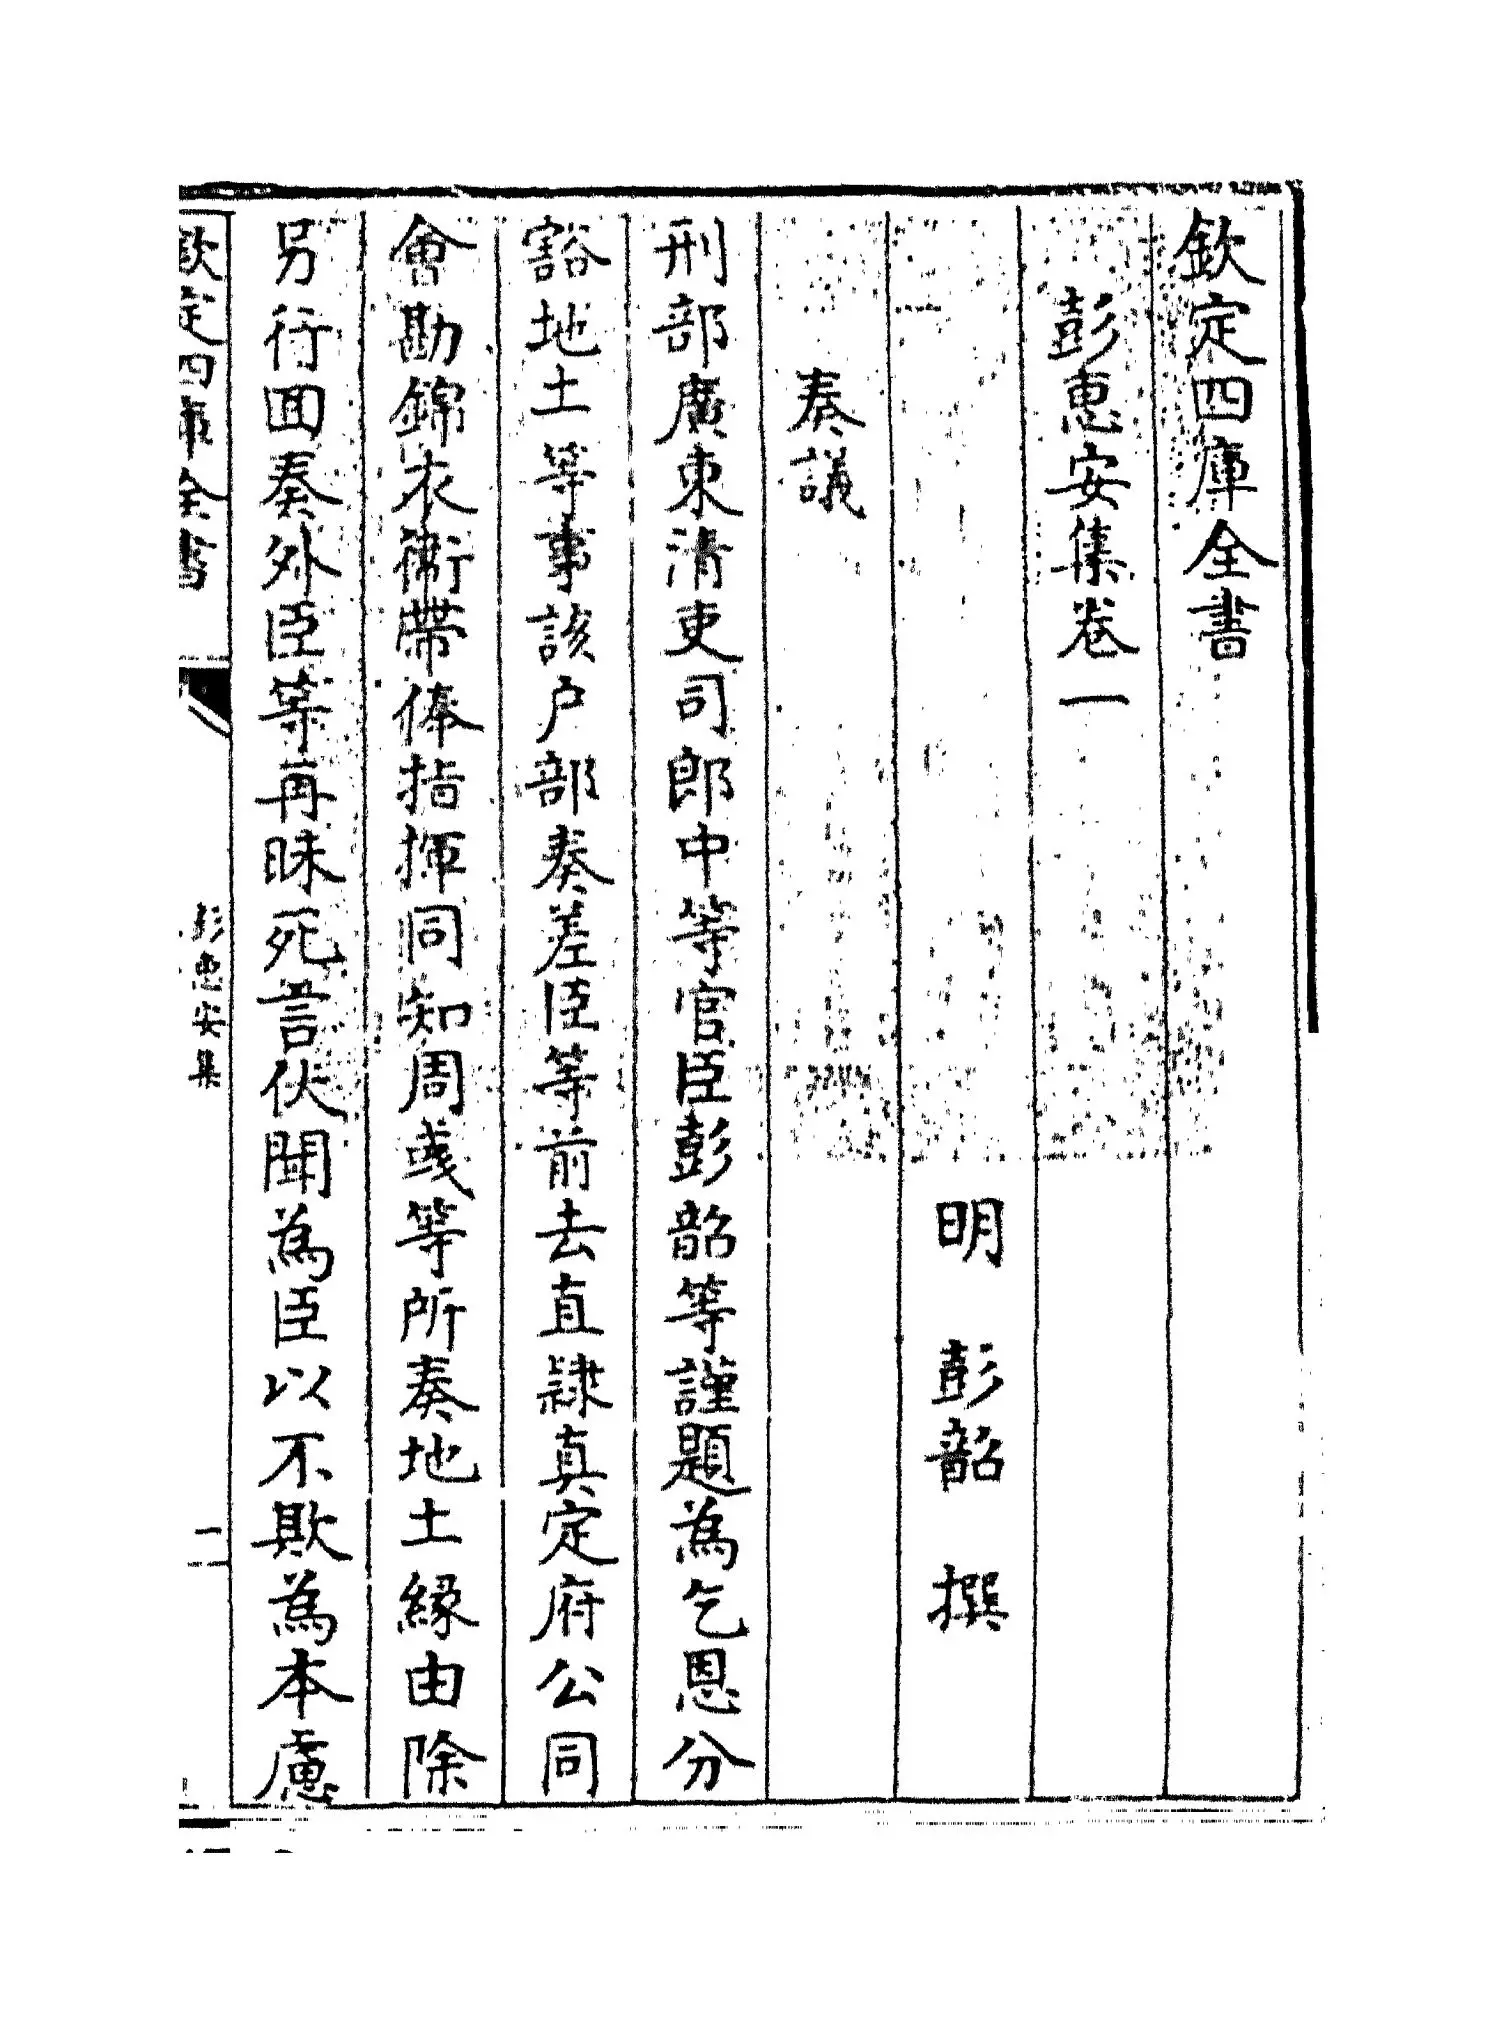 欽定四庫全書
彭惠安集卷一
明 彭韶 撰
奏議
刑部廣東清吏司郎中等官臣彭韶等謹題為乞恩分
豁地土等事該户部奏差臣等前去直隷真定府公同
會勘錦衣衛帶俸指揮同知周彧等所奏地土縁由除
另行回奏外臣等再昧死言伏聞為臣以不欺為本慮
欽定四庫全書
彭惠安集